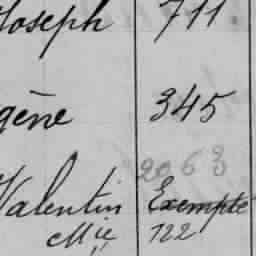 Joseph 711
gène 345
2063
Valentin Exempté
Mie 122